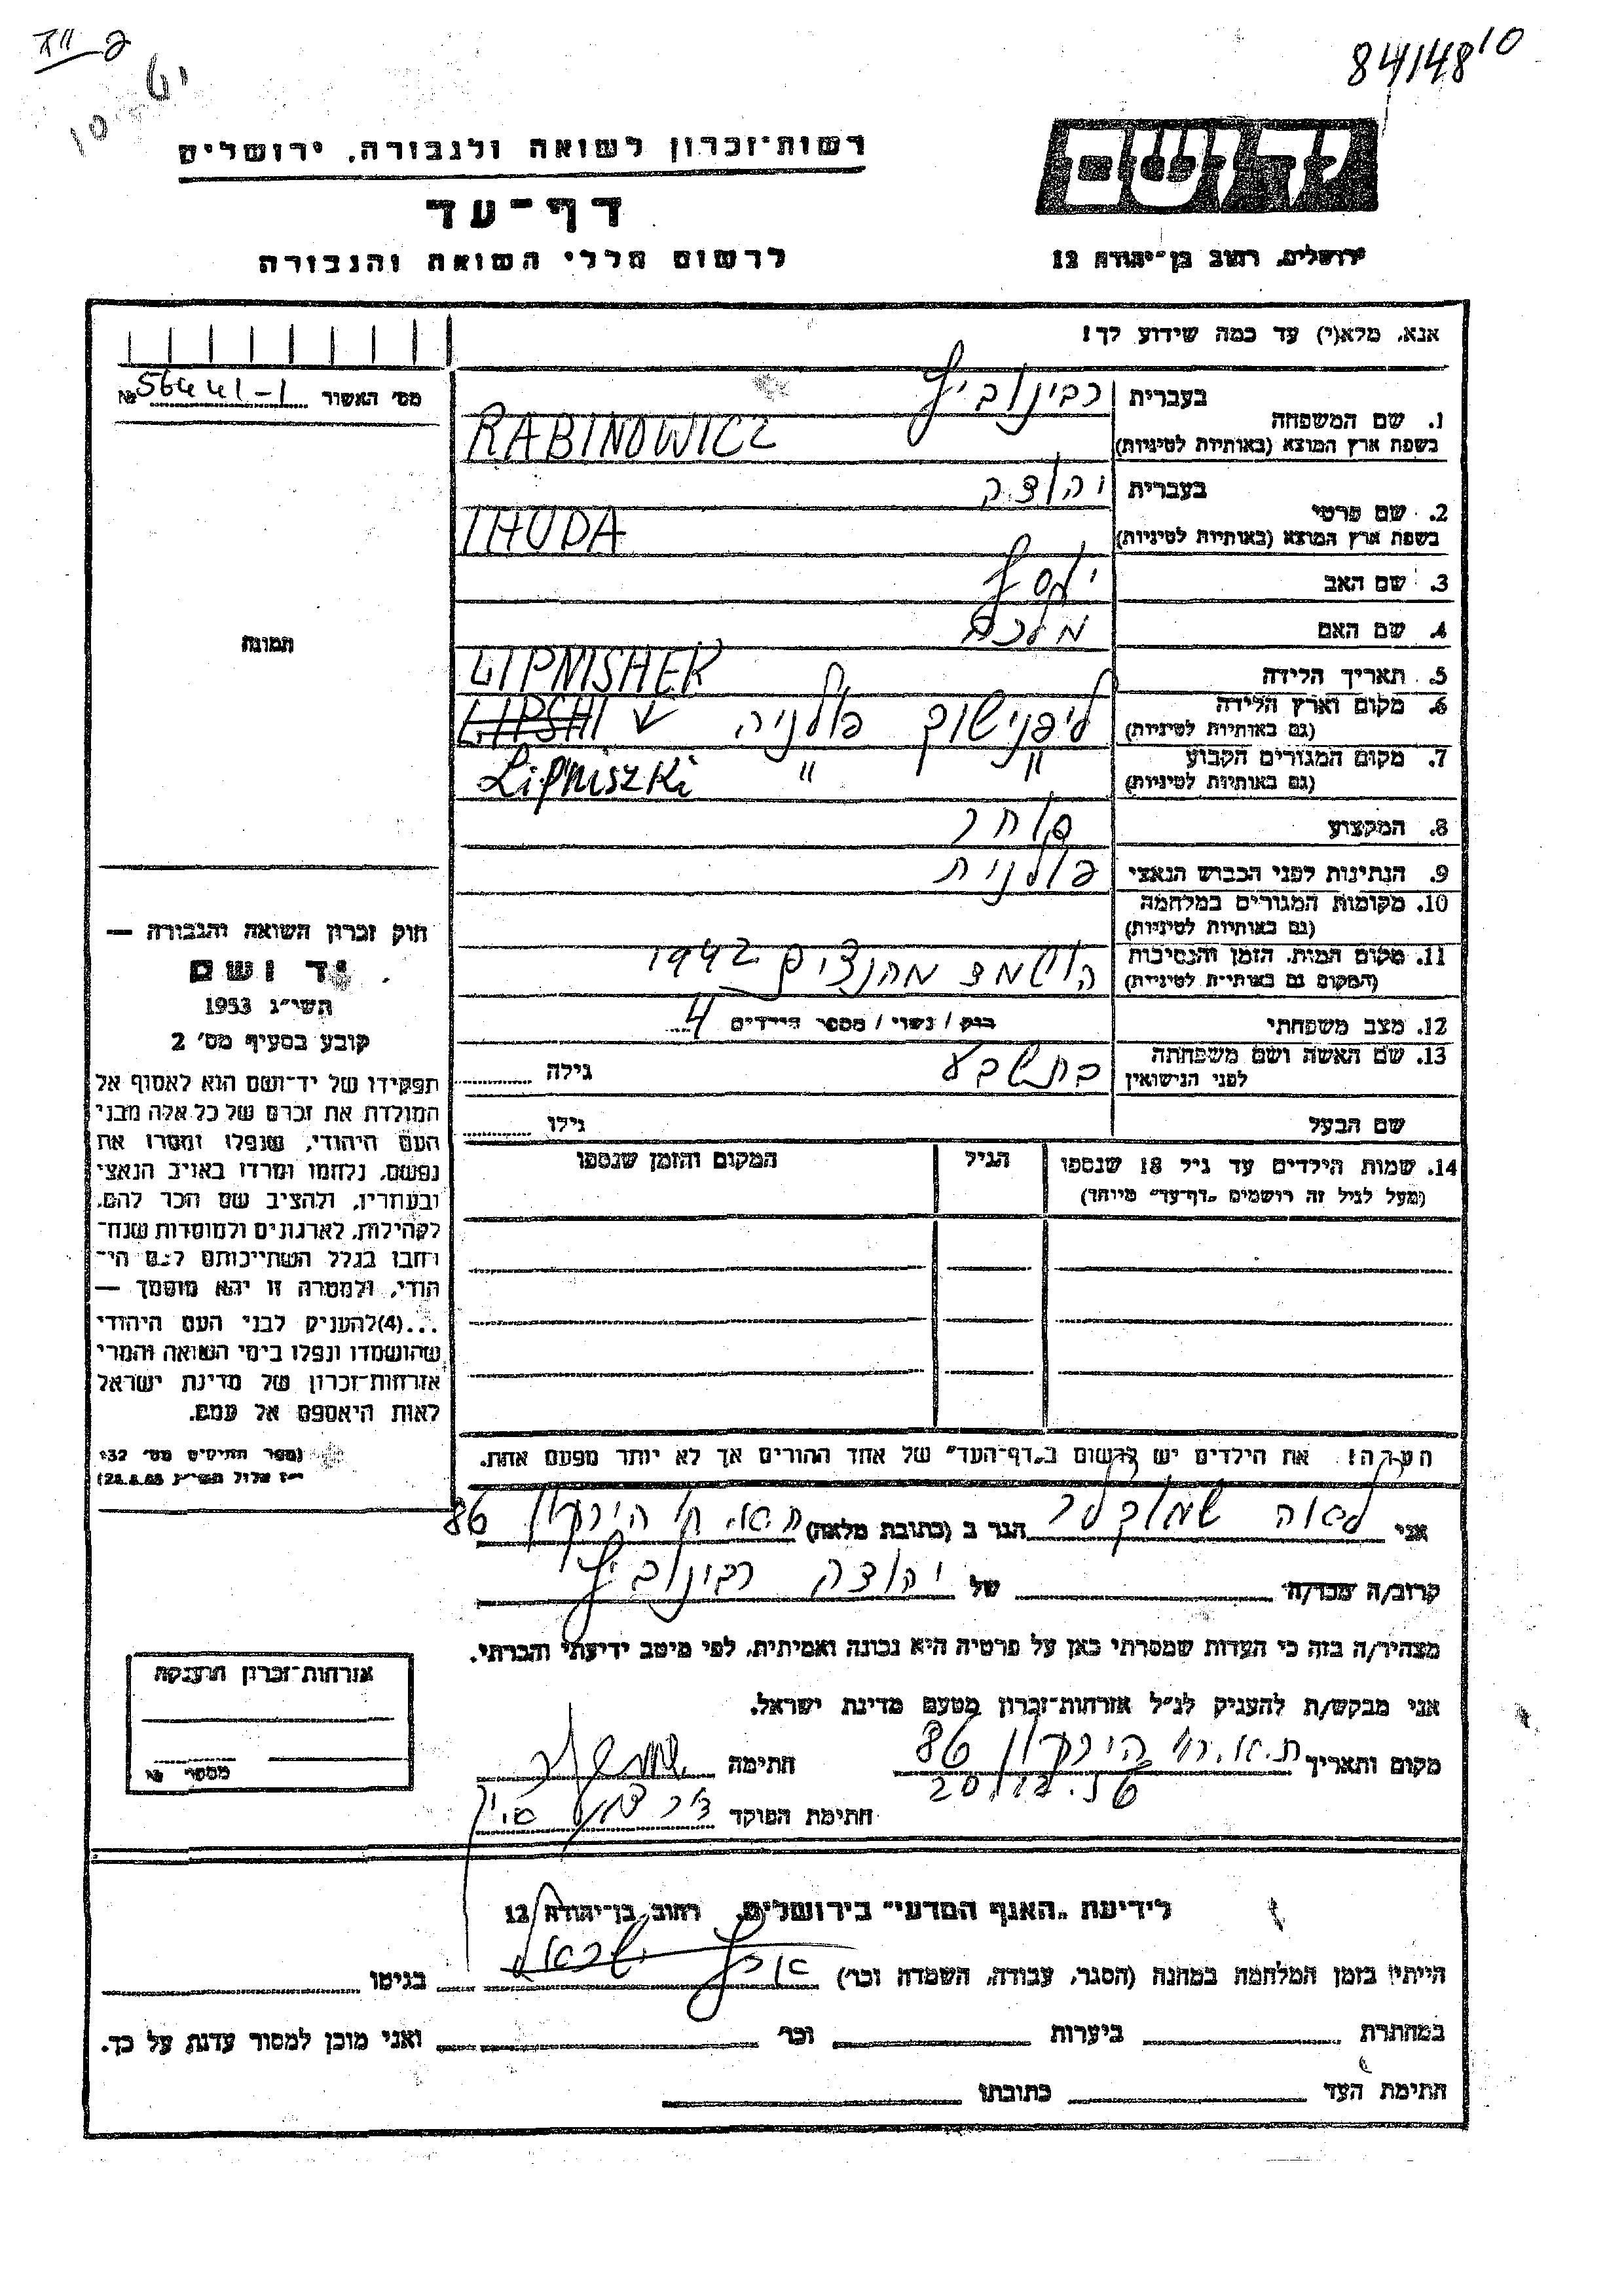 8414810
יד ושם
רשות־זכרון לשואה ולגבורה, ירושלים
דף־עד
ירושלים, רחוב בן־יהודה 12
לרשום חללי השואה והגבורה
אנא, מלא(י) עד כמה שידוע לך!
מס׳ האשור 56441-1 №
1. שם המשפחה
בעברית רבינוביץ
בשפת ארץ המוצא (באותיות לטיניות) RABINOWICZ
2. שם פרטי
בעברית יהודה
בשפת ארץ המוצא (באותיות לטיניות) IHUDA
3. שם האב יוסף
4. שם האם מלכה
5. תאריך הלידה
LIPNISHEK
6. מקום וארץ הלידה
(גם באותיות לטיניות) ליפנישוק פולניה LIPSHI
7. מקום המגורים הקבוע
(גם באותיות לטיניות) " " Lipniszki
8. המקצוע סוחר
9. הנתינות לפני הכבוש הנאצי פולנית
10. מקומות המגורים במלחמה
(גם באותיות לטיניות)
11. מקום המות, הזמן והנסיבות
(המקום גם באותיות לטיניות) הושמד מהנצים 1942
12. מצב משפחתי רווק / נשוי / מספר הילדים 4
13. שם האשה ושם משפחתה
לפני הנישואין בתשבע גילה
שם הבעל גילו
14. שמות הילדים עד גיל 18 שנספו
(מעל לגיל זה רושמים "דף־עד" מיוחד)
הגיל
המקום והזמן שנספו
הערה! את הילדים יש לרשום ב"דף־העד" של אחד ההורים אך לא יותר מפעם אחת.
תמונה
חוק זכרון השואה והגבורה —
יד ושם
תשי״ג 1953
קובע בסעיף מס׳ 2
תפקידו של יד־ושם הוא לאסוף אל
המולדת את זכרם של כל אלה מבני
העם היהודי, שנפלו ומסרו את
נפשם, נלחמו ומרדו באויב הנאצי
ובעוזריו, ולהציב שם וזכר להם,
לקהילות, לארגונים ולמוסדות שנח־
רחבו בגלל השתייכותם לעם הי־
הודי, ולמטרה זו יהא מוסמך —
...(4)להעניק לבני העם היהודי
שהושמדו ונפלו בימי השואה והמרי
אזרחות־זכרון של מדינת ישראל
לאות היאספם אל עמם.
(ספר החוקים מס׳ 132
אני לאה הגר ב (כתובת מלאה) ת.א. רח׳ הירקון 86
קרוב/ה מכר/ה של יהודה רבינוביץ
מצהיר/ה בזה כי העדות שמסרתי כאן על פרטיה היא נכונה ואמיתית, לפי מיטב ידיעתי והכרתי.
אני מבקש/ת להעניק לנ״ל אזרחות־זכרון מטעם מדינת ישראל.
מקום ותאריך ת.א. רח׳ הירקון 86 חתימה
20/12.56
חתימת הפוקד
אזרחות־זכרון הוענקה
מספר
לידיעת "האגף המדעי" בירושלים, רחוב בן־יהודה 12
הייתי בזמן המלחמה במחנה (הסגר, עבודה, השמדה וכו׳) בגיטו
במחתרת ביערות וכו׳ ואני מוכן למסור עדות על כך.
חתימת העד כתובתו